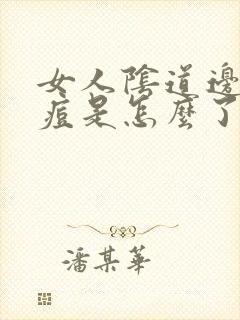 女人陰道邊
痘是怎麼了
潘某華